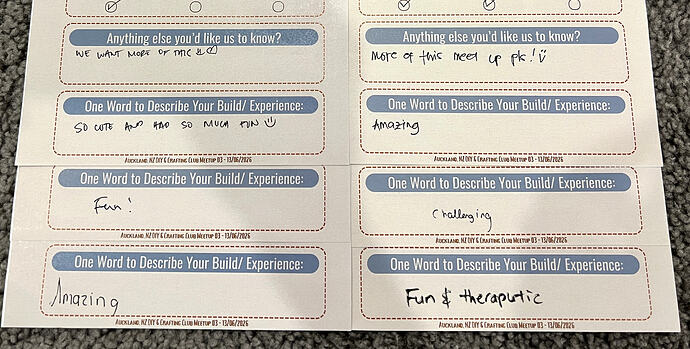 Anything else you'd like us to know?
WE WANT MORE OF THIS
One Word to Describe Your Build/ Experience:
SO CUTE AND HAD SO MUCH FUN
AUCKLAND, NZ DIY & CRAFTING CLUB MEETUP 03 - 13/06/2026
Anything else you'd like us to know?
More of this meet up pls!
One Word to Describe Your Build/ Experience:
Amazing
AUCKLAND, NZ DIY & CRAFTING CLUB MEETUP 03 - 13/06/2026
One Word to Describe Your Build/ Experience:
Fun!
AUCKLAND, NZ DIY & CRAFTING CLUB MEETUP 03 - 13/06/2026
One Word to Describe Your Build/ Experience:
Challenging
AUCKLAND, NZ DIY & CRAFTING CLUB MEETUP 03 - 13/06/2026
One Word to Describe Your Build/ Experience:
Amazing
AUCKLAND, NZ DIY & CRAFTING CLUB MEETUP 03 - 13/06/2026
One Word to Describe Your Build/ Experience:
Fun & theraputic
AUCKLAND, NZ DIY & CRAFTING CLUB MEETUP 03 - 13/06/2026